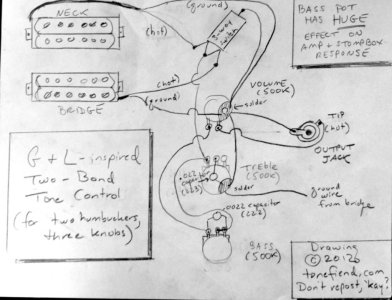 NECK
(ground)
(hot)
3-way
switch
BASS POT
HAS HUGE
EFFECT ON
AMP + STOMPBOX
RESPONSE
(hot)
(ground)
BRIDGE
VOLUME
(500K)
solder
TIP
(hot)
OUTPUT
JACK
G + L-inspired
Two-Band
Tone Control
(for two humbuckers,
three knobs)
.022
capacitor
(223)
TREBLE
(500K)
solder
ground
wire
from bridge
.0022 capacitor
(222)
BASS
(500K)
Drawing
© 2012 by
tonefiend.com
Don't repost, 'kay?